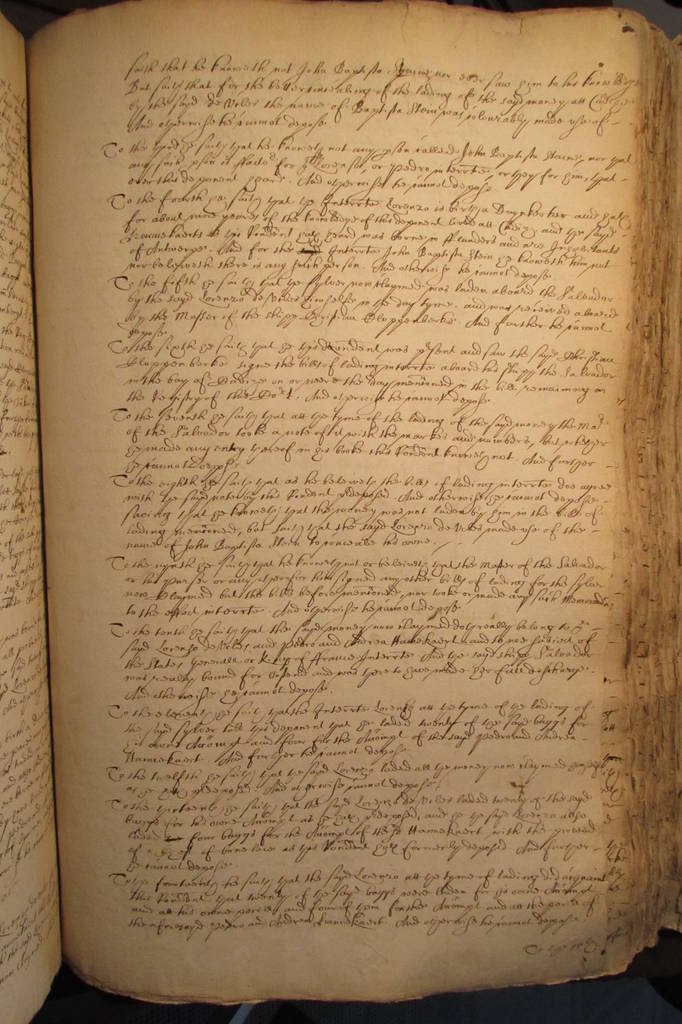 saith that he knoweth not John Baptista nor ever saw him to his knowledge
But saith that for the better of the lading of the said money at Cadiz
by the said de Veles the name of Baptista Stein was colourably made use of
And otherwise he cannot depose
To the third he saith that he knoweth not any person called John Baptista Steine, nor that
any such person is factor for the Lorenzo, or Pedro interrate, or they for him, that
ever this deponent heard. And otherwise he cannot depose
To the fourth he saith that the Interrate Lorenzo is birth a Dunkerker and hath
for about nine yeares of the knowledge of this deponent lived at Cadiz and the said
Hannekaerts as this Rendent hath heard was borne in fflanders and are Inhabitants
of Antwerpe. And for the Interrate John Baptista Stein he knoweth him not
nor beleeveth there is any such person. And otherwise he cannot depose
To the fifth he saith that the sylver now claymed was laden aboard the Salvador
by the said Lorenzo de Veles himselfe in the day tyme. and was received aboard
by the Master of the shipp Christian Cloppenberke And further he cannot
depose
To the sixth he saith that he this Rendent was present and saw the said Christian
Kloppenberke signe the bills of lading interrate aboard his shipp the Salvador
in the bay of Cadiz on or neere the day mentioned in the bills remaining in
the Registry of this Court. And otherwise he cannot depose
To the seventh he saith that at the tyme of the lading of the said money the Master
of the Salvador tooke a note of it with the markes and numbers, but whether
he made any entry thereof in his booke this Rendent knoweth not And further
he cannot depose
To the eighth he saith that as he beleeveth the bills of lading interrate doe agree
with the said note this Rendent predeposed And otherwise he cannot depose
saving that he knoweth that the money was not laden by him in the bills of
lading mentioned, but saith that the said Lorenzo de Veles made use of the
name of John Baptista Stein to conceale his owne.
To the nineth he saith that he knoweth not or beleeveth that the Master of the Salvador
or his purser or any other for him signed any other bills of lading for the sylver
now claymed but the bills before mentioned, nor tooke or made any such Memoranda
to the effect interrate. And otherwise he cannot depose
To the tenth he saith that the said money now claymed doth really belong to the
said Lorenzo de Veles, and Pedro and Andrea Hannekaert and to noe subiect of
the States Generall or King of ffrance Interrate And the said shipp Salvador
was really bound for Ostend and was there to have made her full discharge
And otherwise he cannot depose
To the eleventh he saith that the Interrate Lorenzo at the tyme of the lading of
the said sylver told this deponent that he laded twenty of the said baggs for
his owne Accompt and foure for the Accompt of the said Pedro and Andrea
Hannekaert. And further he cannot depose
To the twelfth he saith that the said Lorenzo laded all the money now claymed
as he hath predeposed And otherwise cannot depose
To the thirteenth he saith that the said Lorenzo de Veles laded twenty of the said
baggs for his owne Accompt as he hath predeposed, and he the said Lorenzo also
laded foure baggs for the Accompt of these Hannekaert with the proceed
of a of bone lace as this Rendent hath formerly deposed. And further
he cannot depose
To the fourteenth he saith that the said Lorenzo at the tyme of lading did acquaint
this Rendent that twenty of the said baggs were laden for his owne Accompt
and at his owne perill and foure of them for the Accompt and at the perill of
the aforesaid Pedro and Andrea Hannekaert. And otherwise he cannot depose
To the